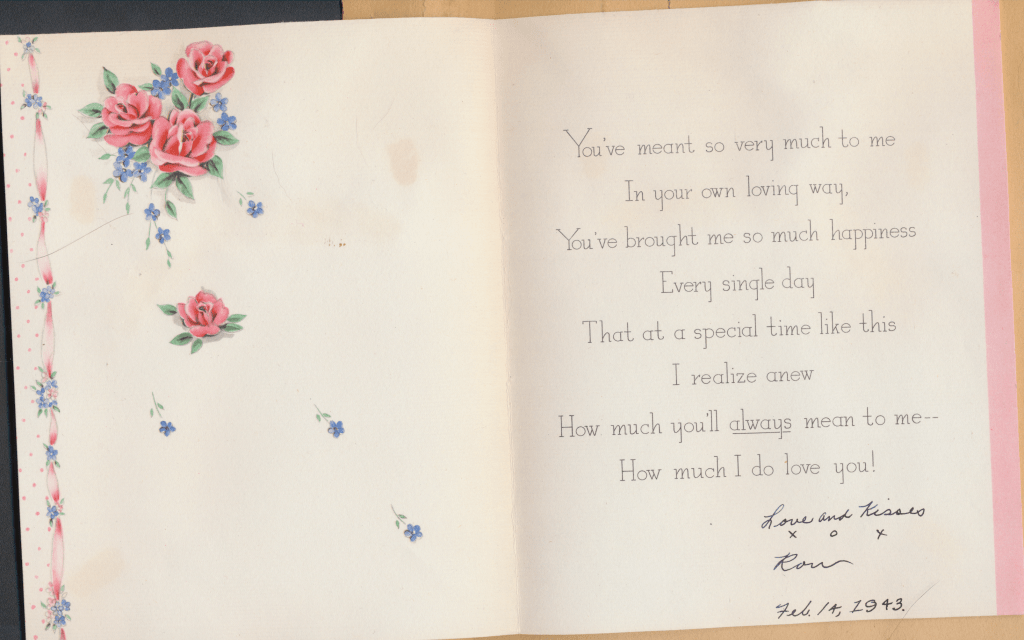 You've meant so very much to me
In your own loving way,
You've brought me so much happiness
Every single day
That at a special time like this
I realize anew
How much you'll always mean to me--
How much I do love you!
Love and Kisses
x o x
Ron
Feb. 14, 1943.